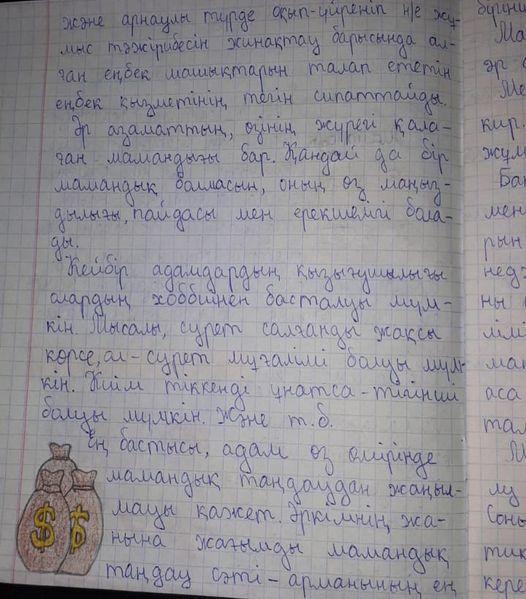 және арнаулы түрде оқып-үйреніп н/е жұ-
мыс тәжірибесін жинақтау барысында ал-
ған еңбек машықтарын талап ететін
еңбек қызметінің тегін сипаттайды.
Әр азаматтың, өзінің жүрегі қала-
ған мамандығы бар. Қандай да бір
мамандық болмасын, оның өз маңыз-
дылығы, пайдасы мен ерекшелігі бола-
ды.
Кейбір адамдардың қызығушылығы
олардың хоббиінен басталуы мүм-
кін. Мысалы, сурет салғанды жақсы
көрсе, ол - сурет мұғалімі болуы мүм-
кін. Киім тіккенді ұнатса - тігінші
болуы мүмкін. Және т.б.
Ең бастысы, адам өз өмірінде
мамандық таңдаудан жаңыл-
мауы қажет. Әркімнің жа-
нына жағымды мамандық
таңдау сәті - арманының ең
$ $
бүгінгі
Ма
әр
Ме
кир.
жұм
Ба
мен
рын
нед
ны
лім
ма
аса
тал
М
лу
Соны
тик
кере